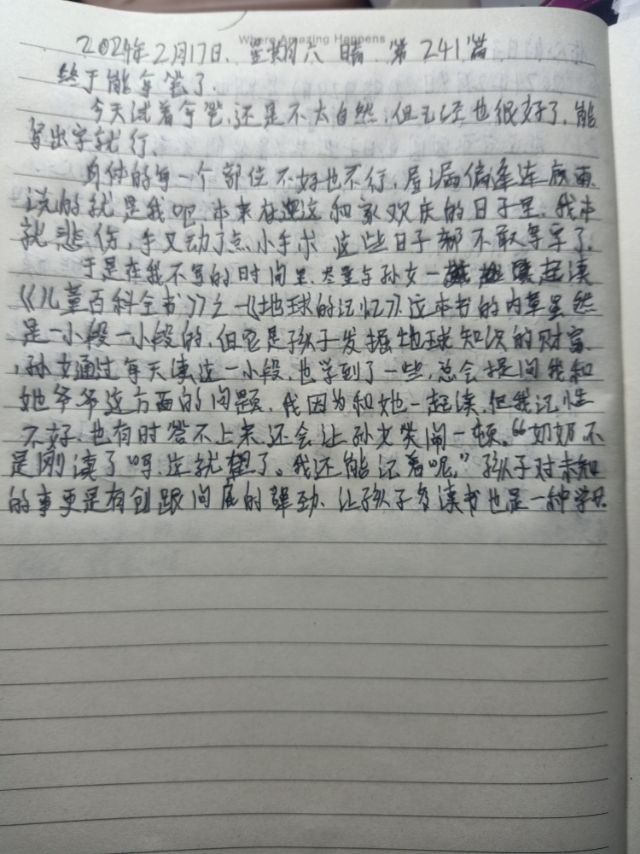 Where Amazing Happens
2024年2月17日、星期六 晴 第241篇
终于能拿笔了.
今天试着拿笔,还是不太自然,但已经也很好了,能
写出字就行.
身体的每一个部位不好也不行,屋漏偏逢连夜雨
说的就是我吧.本来在这和家欢庆的日子里,我本
就悲伤,手又动了点小手术 这些日子都不敢拿笔了.
于是在我不写的时间里,尽量与孙女一起读
《儿童百科全书》之一《地球的记忆》.这本书的内章虽然
是一小段一小段的,但它是孩子发掘地球知识的财富.
孙女通过每天读这一小段,也学到了一些,总会提问我和
她爷爷这方面的问题,我因为和她一起读,但我记性
不好,也有时答不上来,还会让孙女笑闹一顿.“奶奶不
是刚读了吗,这就忘了。我还能记着呢.”孩子对未知
的事更是有刨跟问底的犟劲、让孩子多读书也是一种学习